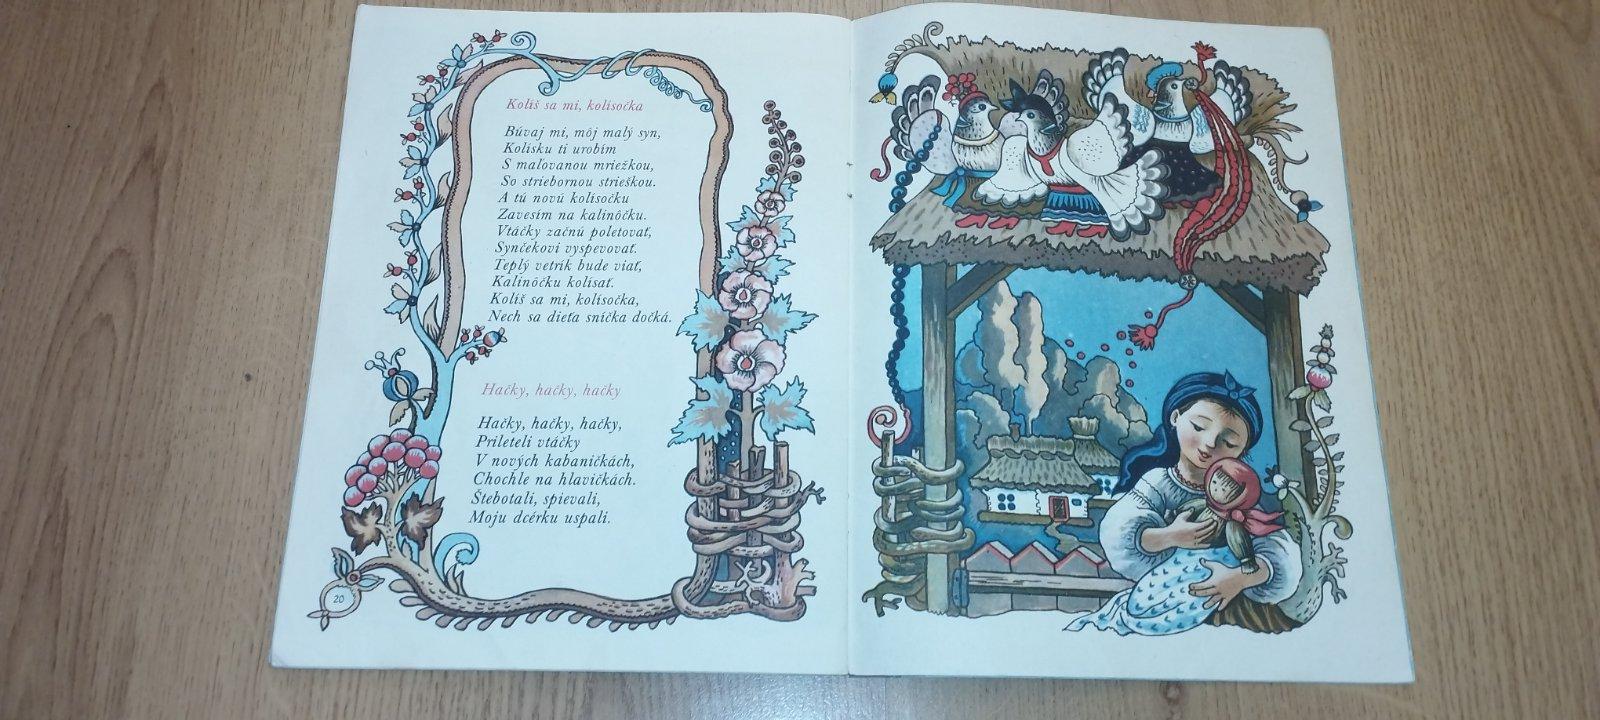 Kolíš sa mi, kolísočka
Búvaj mi, môj malý syn,
Kolísku ti urobím
S maľovanou mriežkou,
So striebornou strieškou.
A tú novú kolísočku
Zavesím na kalinôčku.
Vtáčky začnú poletovať,
Synčekovi vyspevovať.
Teplý vetrík bude viať,
Kalinôčku kolísať.
Kolíš sa mi, kolísočka,
Nech sa dieťa sníčka dočká.
Hačky, hačky, hačky
Hačky, hačky, hačky,
Prileteli vtáčky
V nových kabaničkách,
Chochle na hlavičkách.
Štebotali, spievali,
Moju dcérku uspali.
20